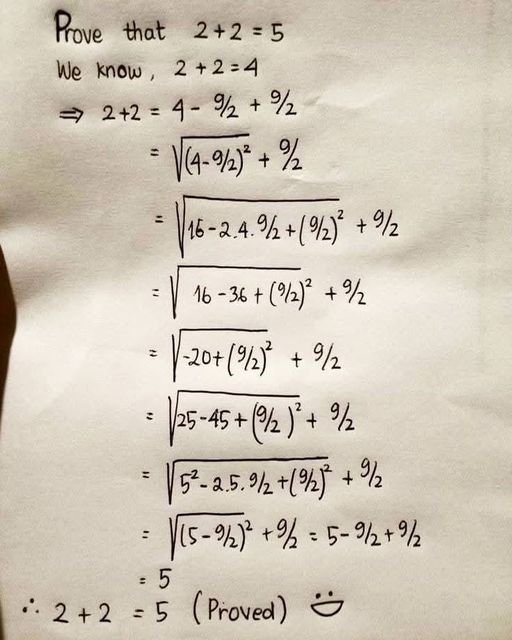 Prove that 2+2=5
We know, 2+2=4
⇒ 2+2 = 4 - 9/2 + 9/2
= √(4-9/2)² + 9/2
= √16-2.4.9/2+(9/2)² + 9/2
= √16-36+(9/2)² + 9/2
= √-20+(9/2)² + 9/2
= √25-45+(9/2)² + 9/2
= √5²-2.5.9/2+(9/2)² + 9/2
= √(5-9/2)² + 9/2 = 5-9/2+9/2
= 5
∴ 2+2 = 5 (Proved)